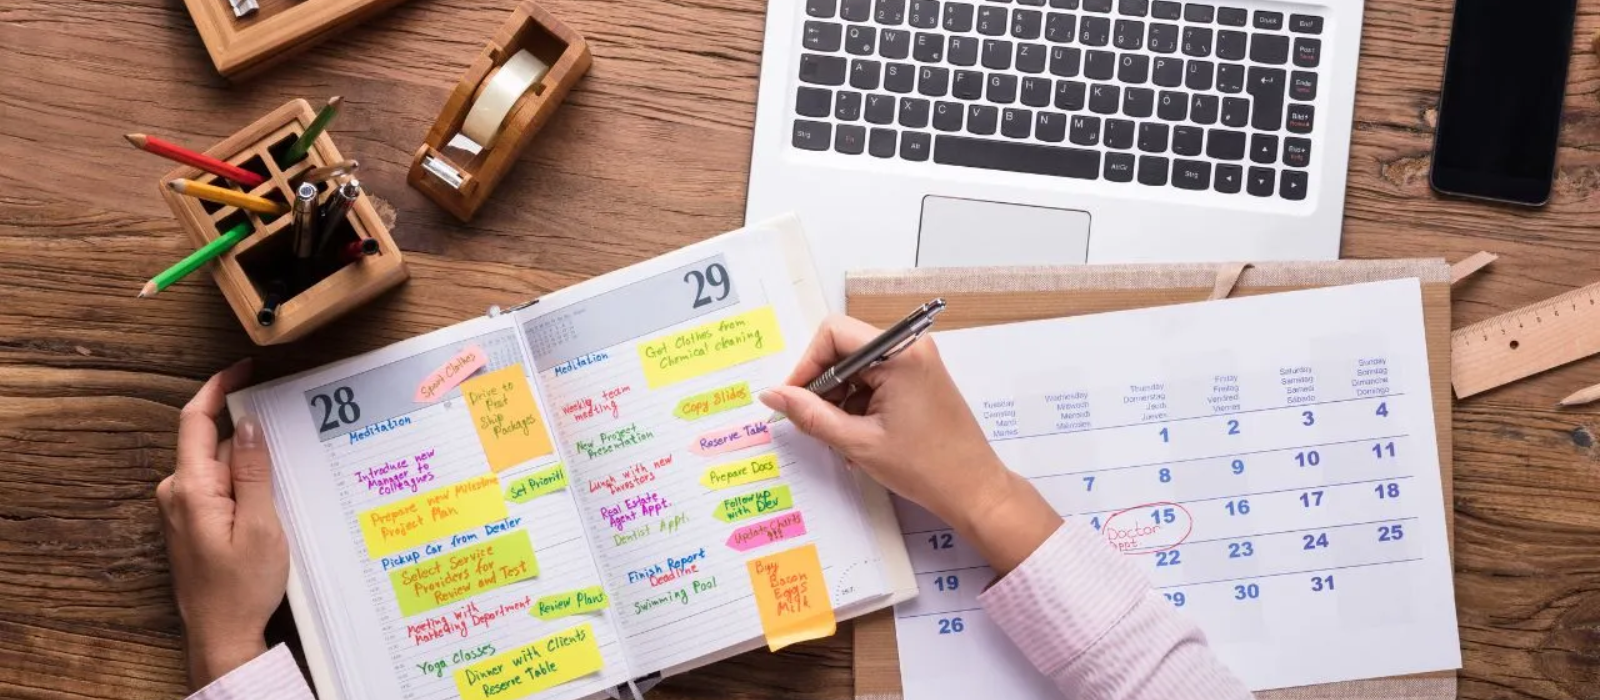 28
Meditation
Sport Clothes
Drive to
Post
Ship
Packages
Introduce new
Manager to
colleagues
Set Priorití
Prepare new Milestone
Project Plan
Pickup Car from Dealer
Select Service
Providers for
Review and Test
Meeting with
Marketing Department
Review Plans
Yoga Classes
Dinner with Clients
Reserve Table
29
Meditation
Get Clothes from
Chemical cleaning
Weekly team
meeting
Copy Slides
New Project
Presentation
Reserve Table
Lunch with new
Investors
Prepare Docs
Real Estate
Agent Appt.
Follow up
with Dev
Dentist Appt.
Update Charts
!!!
Finish Report
Deadline
Swimming Pool
Buy
Bacon
Eggs
Milk
Q W E R T Z U I O P Ü
A S D F G H J K L Ö Ä
Y X C V B N M
Strg Fn Alt AltGr Strg
Tuesday Wednesday Thursday Friday Saturday Sunday
Dienstag Mittwoch Donnerstag Freitag Samstag Sonntag
Mardi Mercredi Jeudi Vendredi Samedi Dimanche
Martes Miércoles Jueves Viernes Sábado Domingo
1 2 3 4
7 8 9 10 11
12 4 15 16 17 18
Doctor
19 22 23 24 25
26 29 30 31